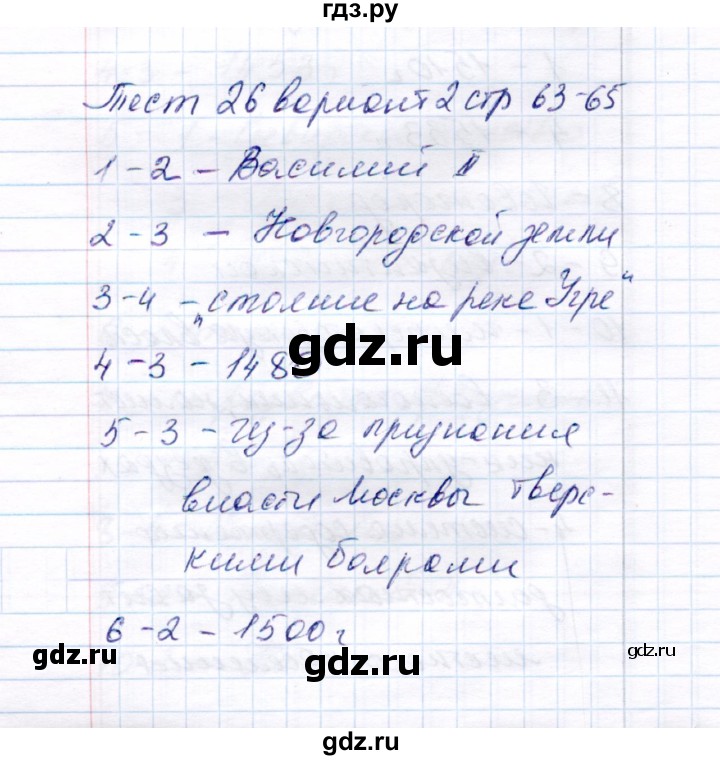 гдз.ру
Тест 26 вариант 2 стр 63-65
1-2 - Василий II
2-3 - Новгородской земли
3-4 - „стояние на реке Угре"
4-3 - 148
gdz.ru
5-3 - Из-за признания
власти Москвы Тверс-
кими боярами
6-2 - 1500г
gdz.ru
gdz.ru
gdz.ru
gdz.ru